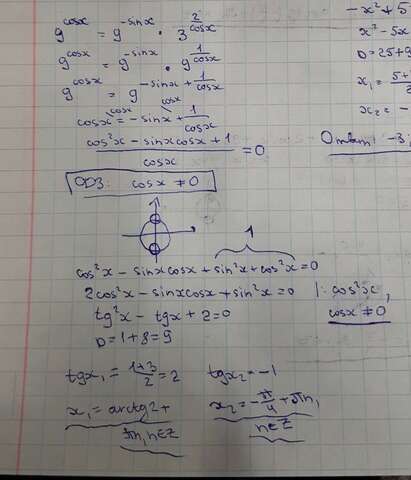 9^cosx = 9^-sinx · 3^(2/cosx)
9^cosx = 9^-sinx · 9^(1/cosx)
9^cosx = 9^(-sinx + 1/cosx)
cosx = -sinx + 1/cosx
cosx cosx
(cos²x - sinxcosx + 1)/cosx = 0
ОДЗ: cosx ≠ 0
1
cos²x - sinxcosx + sin²x + cos²x = 0
2cos²x - sinxcosx + sin²x = 0 | : cos²x,
tg²x - tgx + 2 = 0 cosx ≠ 0
D = 1 + 8 = 9
tgx₁ = (1+3)/2 = 2 tgx₂ = -1
x₁ = arctg2 + x₂ = -π/4 + πn,
πn, n∈Z n∈Z
-x² + 5
x² - 5x
D = 25 + 9
x₁ = 5+
x₂ = -
Ответ: -3,